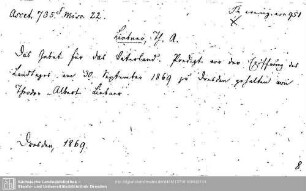 Ascet. 735.f misc. 22.
Th. evang. asc 951
Liebner, Th. A.
Das Gebet für das Vaterland. Predigt vor der Eröffnung des
Landtages, am 30. September 1869 zu Dresden gehalten von
Theodor Albert Liebner.
Dresden, 1869.
8.
Sächsische Landesbibliothek -
Staats- und Universitätsbibliothek Dresden